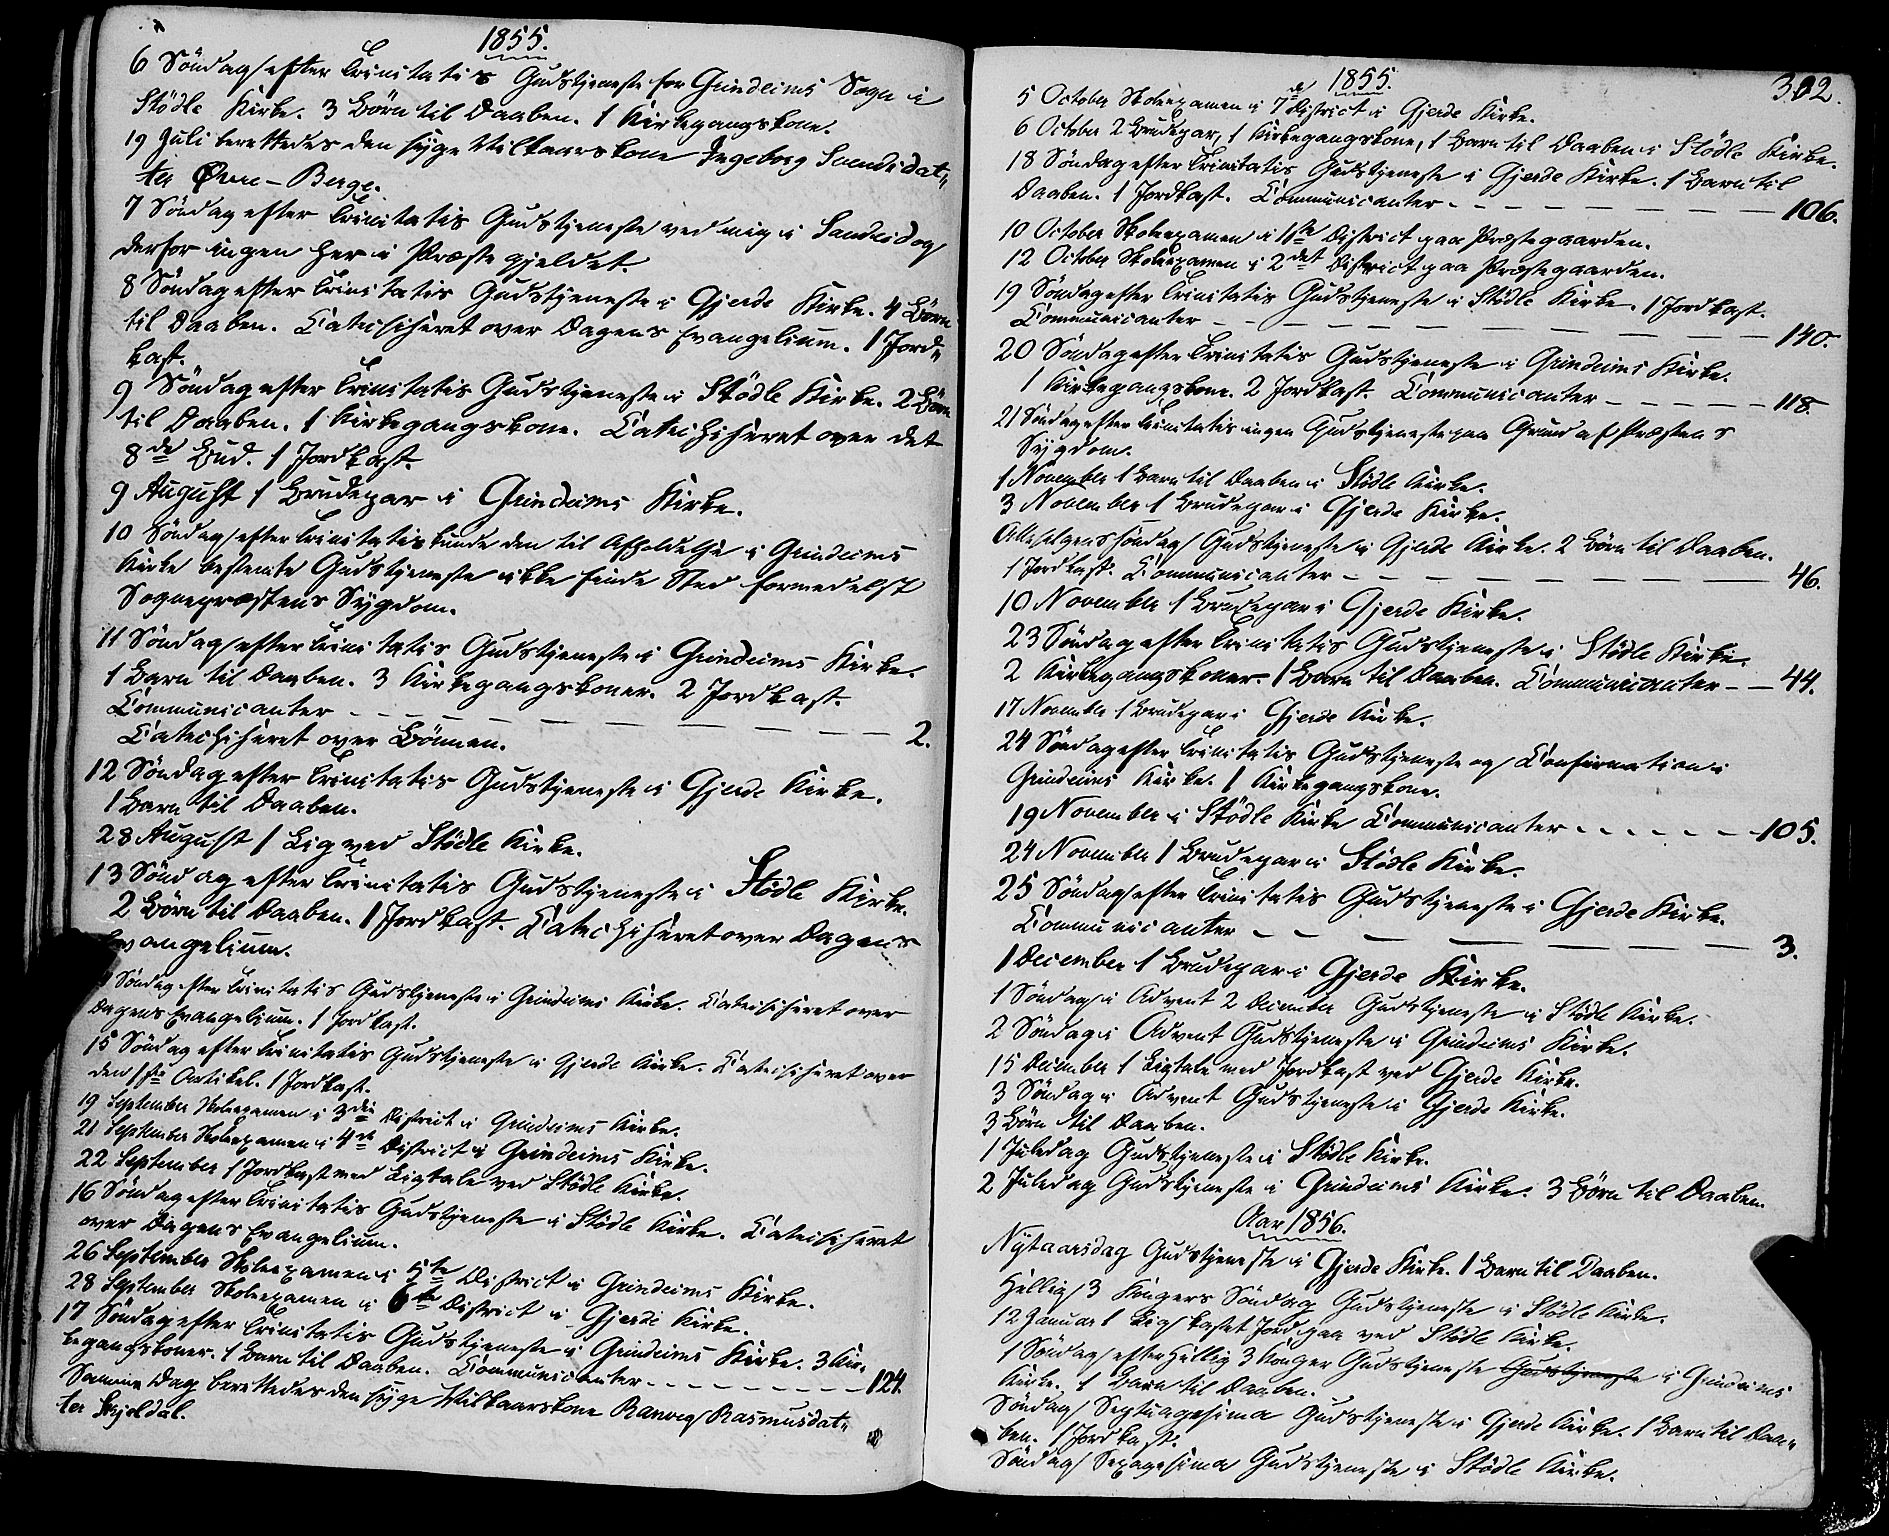 1855.
6 Söndag efter Trinitatis Gudstjeneste for Grindeims Sogn i
Stödle Kirke. 3 Börn til Daaben. 1 Kirkegangskone.
19 Juli berettedes den syge Vilkaarskone Ingeborg Svendsdat„
ter Øvre-Berge.
7 Söndag efter Trinitatis Gudstjeneste ved mig i Sandeid og
derfor ingen her i Præstegjeldet.
8 Söndag efter Trinitatis Gudstjeneste i Gjerde Kirke. 4 Börn
til Daaben. Catechiseret over Dagens Evangelium. 1 Jord„
kast.
9 Söndag efter Trinitatis Gudstjeneste i Stödle Kirke. 2 Börn
til Daaben. 1 Kirkegangskone. Catechiseret over det
8de Bud. 1 Jordkast.
9 August 1 Brudepar i Grindeims Kirke.
10 Söndag efter Trinitatis kunde den til Afholdelse i Grindeims
Kirke bestemte Gudstjeneste ikke finde Sted formedelst
Sognepræstens Sygdom.
11 Söndag efter Trinitatis Gudstjeneste i Grindeims Kirke.
1 Barn til Daaben. 3 Kirkegangskoner. 2 Jordkast.
Communicanter - - - - - - - - - - 2.
Catechiseret over Bönnen.
12 Söndag efter Trinitatis Gudstjeneste i Gjerde Kirke.
1 Barn til Daaben.
28 August 1 Lig ved Stödle Kirke.
13 Söndag efter Trinitatis Gudstjeneste i Stödle Kirke.
2 Börn til Daaben. 1 Jordkast. Catechiseret over Dagens
Evangelium.
Söndag efter Trinitatis Gudstjeneste i Grindeims Kirke. Catechiseret over
Dagens Evangelium. 1 Jordkast.
15 Söndag efter Trinitatis Gudstjeneste i Gjerde Kirke. Catechiseret over
den 1ste Artikel. 1 Jordkast.
19 September Skoleexamen i 3die District i Grindeims Kirke.
21 September Skoleexamen i 4de District i Grindeims Kirke.
22 September 1 Jordkast med Ligtale ved Stödle Kirke.
16 Söndag efter Trinitatis Gudstjeneste i Stödle Kirke. Catechiseret
over Dagens Evangelium.
26 September Skoleexamen i 5te District i Grindeims Kirke.
28 September Skoleexamen i 6te District i Gjerde Kirke.
17 Söndag efter Trinitatis Gudstjeneste i Grindeims Kirke. 3 Kir„
kegangskoner. 1 Barn til Daaben. Communicanter - - - - - - - - - 124.
Samme Dag berettedes den syge Vilkaarskone Ranveg Rasmusdat„
ter Skjoldal.
1855.
302.
5 October Skoleexamen i 7de District i Gjerde Kirke.
6 October 2 Brudepar, 1 Kirkegangskone, 1 Barn til Daaben i Stödle Kirke.
18 Söndag efter Trinitatis Gudstjeneste i Gjerde Kirke. 1 Barn til
Daaben. 1 Jordkast. Communicanter - - - - - - - - - 106.
10 October Skoleexamen i 1ste District paa Præstegaarden.
12 October Skoleexamen i 2det District paa Præstegaarden.
19 Söndag efter Trinitatis Gudstjeneste i Stödle Kirke. 1 Jordkast.
Communicanter - - - - - - - - - - - - 140.
20 Söndag efter Trinitatis Gudstjeneste i Grindeims Kirke.
1 Kirkegangskone. 2 Jordkast. Communicanter - - - - - 118.
21 Söndag efter Trinitatis ingen Gudstjeneste paa Grund af Præstens
Sygdom.
1 November 1 Barn til Daaben i Stödle Kirke.
3 November 1 Brudepar i Gjerde Kirke.
Allehelgens söndag Gudstjeneste i Gjerde Kirke. 2 Börn til Daaben.
1 Jordkast. Communicanter - - - - - - - - - - 46.
10 November 1 Brudepar i Gjerde Kirke.
23 Söndag efter Trinitatis Gudstjeneste i Stödle Kirke.
2 Kirkegangskoner 1 Barn til Daaben. Communicanter - - 44.
17 November 1 Brudepar i Gjerde Kirke.
24 Söndag efter Trinitatis Gudstjeneste og Confirmation i
Grindeims Kirke. 1 Kirkegangskone.
19 November i Stödle Kirke Communicanter - - - - - - 105.
24 November 1 Brudepar i Stödle Kirke.
25 Söndag efter Trinitatis Gudstjeneste i Gjerde Kirke.
Communicanter - - - - - - - - - - 3.
1 December 1 Brudepar i Gjerde Kirke.
1 Söndag i Advent 2 December Gudstjeneste i Stödle Kirke.
2 Söndag i Advent Gudstjeneste i Grindeims Kirke.
15 December 1 Ligtale med Jordkast ved Gjerde Kirke.
3 Söndag i Advent Gudstjeneste i Gjerde Kirke.
3 Börn til Daaben.
1 Juledag Gudstjeneste i Stödle Kirke.
2 Juledag Gudstjeneste i Grindeims Kirke. 3 Börn til Daaben.
Aar 1856.
Nytaarsdag Gudstjeneste i Gjerde Kirke. 1 Barn til Daaben.
Hellig 3 Kongers Söndag Gudstjeneste i Stödle Kirke.
12 Januar 1 Lig kastet Jord paa ved Stödle Kirke.
1 Söndag efter Hellig 3 Konger Gudstjeneste Gudstjeneste i Grindeims
Kirke. 1 Barn til Daaben.
Söndag Septuagesima Gudstjeneste i Gjerde Kirke. 1 Barn til Daa„
ben. 1 Jordkast.
Söndag Sexagesima Gudstjeneste i Stödle Kirke.